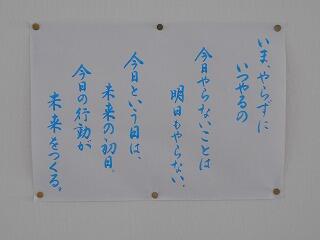 いま、やらずに
いつやるの
今日やらないことは
明日もやらない。
今日という日は、
未来の初日。
今日の行動が
未来をつくる。